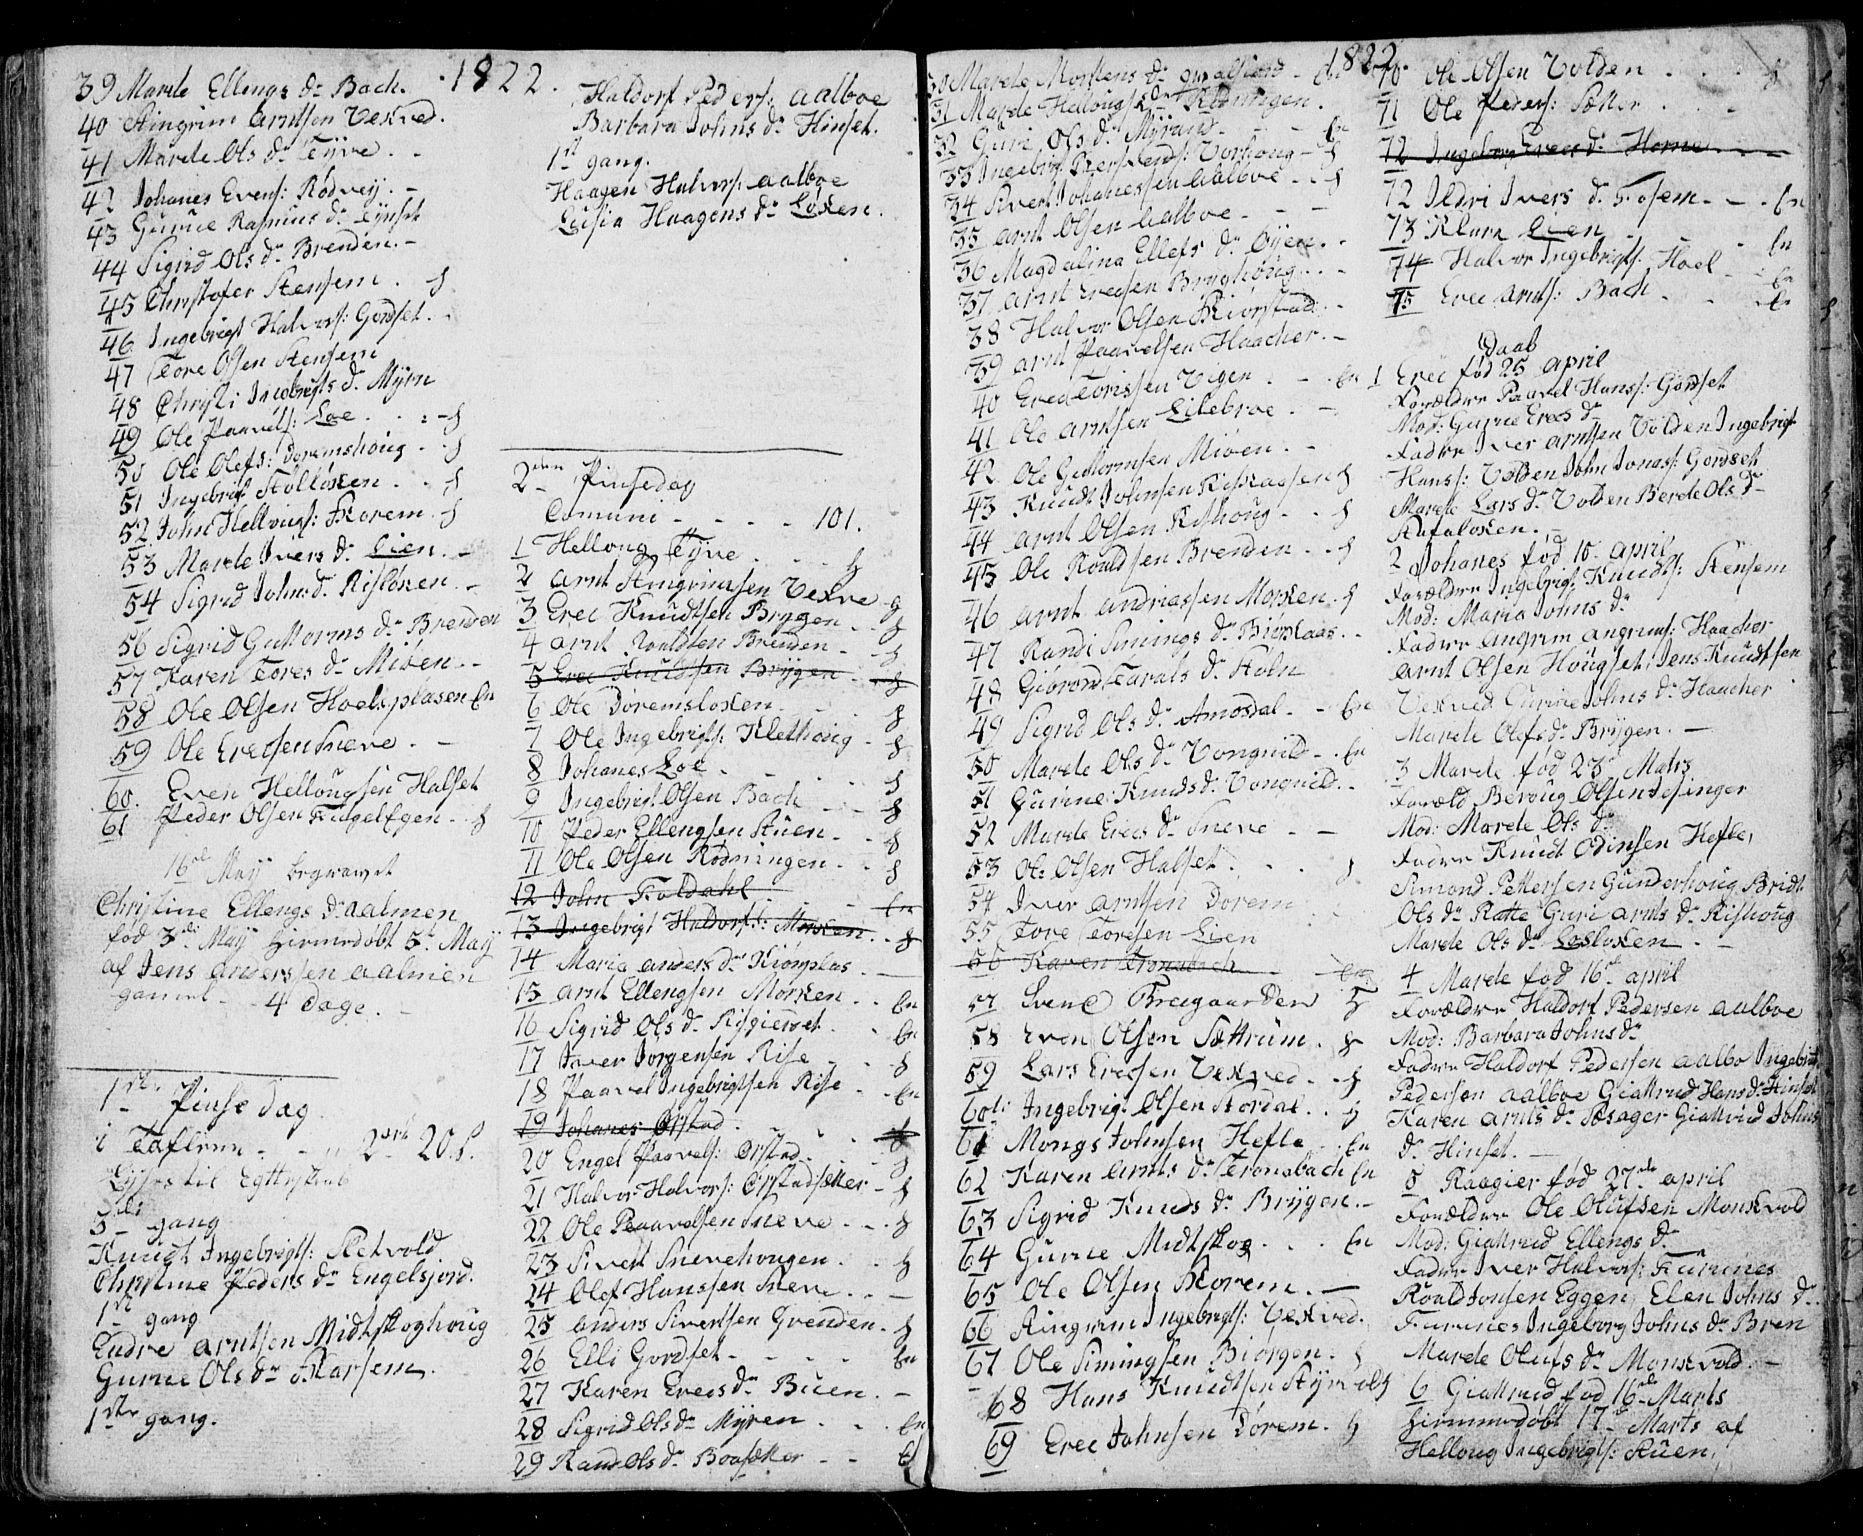 1822.
39 Marete Ellengs dr Bach.
40 Aingrim Arntsen Vekved.
41 Marete Ols dr Tyve
42 Johanes Evens: Rödvej.
43 Gurue Rasmus dr Lynset
44 Sigrid Ols dr Brenden.
45 Christofer Stensem
46 Ingebrigt Halvors: Gordset.
47 Tore Olsen Stensem
48 Christi Ingebrigts dr Myrn
49 Ole Paavels: Loe
50 Ole Olefs: Doremshoug
51 Ingebrigt Stölløken
52 John Hellougs: Skorem
53 Marete Ivers dr Lien
54 Sigrid Johns dr Risløken
56 Sigrid Guttorms dr Brenden
57 Karen Tores dr Miöen
58 Ole Olsen Hoelsplasen En
59 Ole Erecsen Sneve
60. Even Hellougsen Halset
61 Peder Olsen FugelEgen
16de May begravet
Christine Ellengs dr Aalmen
fød 3di May hiemmedøbt 5te May
af Jens Anderssen Aalmen
gammel 4 Dage.
1ste Pinse dag
i Taflerne 2 ort 20 s.
3die gang
Knudt Ingebrigts: Sletvold
Christine Peders dr Engelsjord.
1ste gang
Endre Arntsen Midtskoghoug
Gurue Ols dr Skarsem
1ste gang.
Haldorf Peders: Aalboe
Barbara Johns dr Hinset.
1ste gang.
Haagen Halvors: Aalboe
Lusia Haagens dr Løken.
2den Pinsedag
Comuni 101.
1 Helloug Tyve
2 Arnt Aingrimsen Vekve
3 Erec Knudtsen Brygen
4 Arnt Roaldsen Brenden
5 Erec Knudtsen Brygen
6 Ole Doremsløken
7 Ole Ingebrigts: Klethoug
8 Johanes Loe
9 Ingebrigt Olsen Bach
10 Peder Ellengsen Stuen
11 Ole Olsen Rödningen
12 John Foldahl En
13 Ingebrigt Haldorfs: Mørken
14 Maria Anders dr Kiønplas
15 Arnt Ellengsen Mørken En
16 Sigrid Ols dr Risgierdet En
17 Iver Jørgensen Rise
18 Paavel Ingebrigtsen Rise En
19 Johanes Ørstad
20 Engel Paavels: Ørstad
21 Halvor Halvors: Ørstadsetter
22 Ole Paavelsen Sneve
23 Sivert Snevehougen
24 Olef Hanssen Sneve
25 Anders Sivertsen Grenden
26 Elli Gordset En
27 Karen Erecs dr Buen
28 Sigrid Ols dr Myren En
29 Rand Ols dr Boasetter
1822
30 Marete Mortens dr En
31 Marete Hellougs dr Rödningen
32 Guri Ols dr Myrand En
33 Ingebrigt Estensens: Vorhoug
34 Sivert Johanessen Aalboe
35 Arnt Olsen Aalboe
36 Magdalina Ellefs dr Øyen
37 Arnt Erecsen Bryghoug
38 Halvor Olsen Kiørstad
39 Arnt Paavelsen Haacher
40 Erec Torissen Vigen En
41 Ole Arntsen Lilebroe
42 Ole Guttormsen Miöen
43 Knudt Johnsen Riskaasen
44 Arnt Olsen Rishoug
45 Ole Roaldsen Brenden
46 Arnt Andreassen Mørken
47 Randi Simings dr Bioplaas
48 Gibrond Taralds dr Støln
49 Sigrid Ols dr Amosdal En
50 Marete Ols dr Vongnild En
51 Gurine Knuds dr Vongnild
52 Marete Erecs dr Sneve
53 Ole Olsen Halset
54 Iver Arntsen Dorem
55 Tore Toresen Lien
56 Karen Tronsbach En
57 Svend Tregaarden
58 Even Olsen Settrum
59 Lars Erecsen Vekved
60 Ingebrigt Olsen Stordal
61 Mongs Johnsen Hefle En
62 Karen Arnts dr Tronsbach En
63 Sigrid Knuds dr Brygen
64 Gurue Midtskog En
65 Ole Olsen Skorem
66 Aingrim Ingebrigts: Vekved.
67 Ole Simingsen Biørgen
68 Hans Knudtsen Styrvold
69 Erec Johnsen Dørem
70 Ole Olsen Volden
71 Ole Peders: Setter
72 Ingeborg Erecs dr Horne
72 Ildri Ivers dr Fosem En
73 Klara Lien En
74 Halvor Ingebrigts: Hoel En
75 Erec Arnts: Bach En
Daab
1 Erec fød 25 April
Forældre Paavel Hanss: Gordset
Mod: Gurue Erecs dr
Fadre Iver Arntsen Volden Ingebrigt
Hanss: Volden John Jonas: Gordset
Marete Lars dr Volden Berete Ols dr
2 Johanes fød 10 April
Forældre Ingebrigt Knudts: Stensem
Mod: Maria Johns dr
Fadre Angrim Angrims: Haacher
Arnt Olsen Hougset, Jens Knudtsen
Vekved Gurine Johns dr Haacher
Marete Olefs dr Brygen.
3 Marete fød 23 Mats
Foræld Beroug Olsen Jesinger
Mod: Marete Ols dr
Fadre Knudt Odinsen Hefle,
Simond Pettersen Gunderhoug Bridt
Ols dr Ratte Guri Arnts dr Rishoug
Marete Ols dr Lesløken
4 Marete fød 16de April
Forældre Haldorf Pedersen Aalboe
Mod: Barbara Johns dr
Fadre Haldorf Pedersen Aalbo Ingebrigt
Pedersen Aalboe Giættrud Hans dr Hinset
Karen Arnts dr Sesager Giættrud Johns
dr Hinset.
5 Raagier fød 27de April
Forældre Ole Olufsen Monkvold
Mod: Giættrud Ellengs dr
Fadre Iver Halvors: Furunes
Roald Jonsen Eggen, Elen Johns dr
Furunes Ingeborg Johns dr Bren
Marete Olufs dr Monkvold.
6 Giættrud fød 16de Marts
hiemmedøbt 17de Marts af
Helloug Ingebrigts: Stuen,